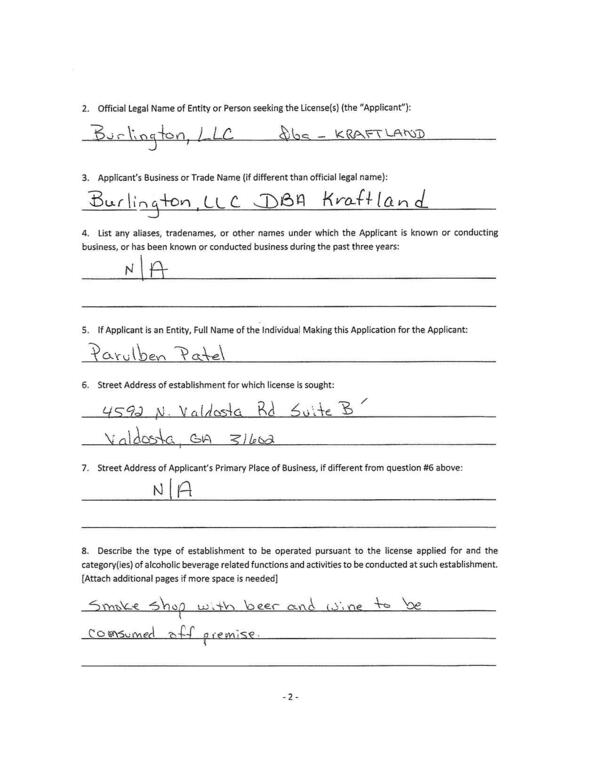 2. Official Legal Name of Entity or Person seeking the License(s) (the "Applicant"):
Burlington, LLC dba - KRAFTLAND
3. Applicant's Business or Trade Name (if different than official legal name):
Burlington, LLC DBA Kraftland
4. List any aliases, tradenames, or other names under which the Applicant is known or conducting
business, or has been known or conducted business during the past three years:
N/A
5. If Applicant is an Entity, Full Name of the Individual Making this Application for the Applicant:
Parulben Patel
6. Street Address of establishment for which license is sought:
4592 N. Valdosta Rd Suite B
Valdosta, GA 31602
7. Street Address of Applicant's Primary Place of Business, if different from question #6 above:
N/A
8. Describe the type of establishment to be operated pursuant to the license applied for and the
category(ies) of alcoholic beverage related functions and activities to be conducted at such establishment.
[Attach additional pages if more space is needed]
Smoke shop with beer and wine to be
consumed off premise.
- 2 -